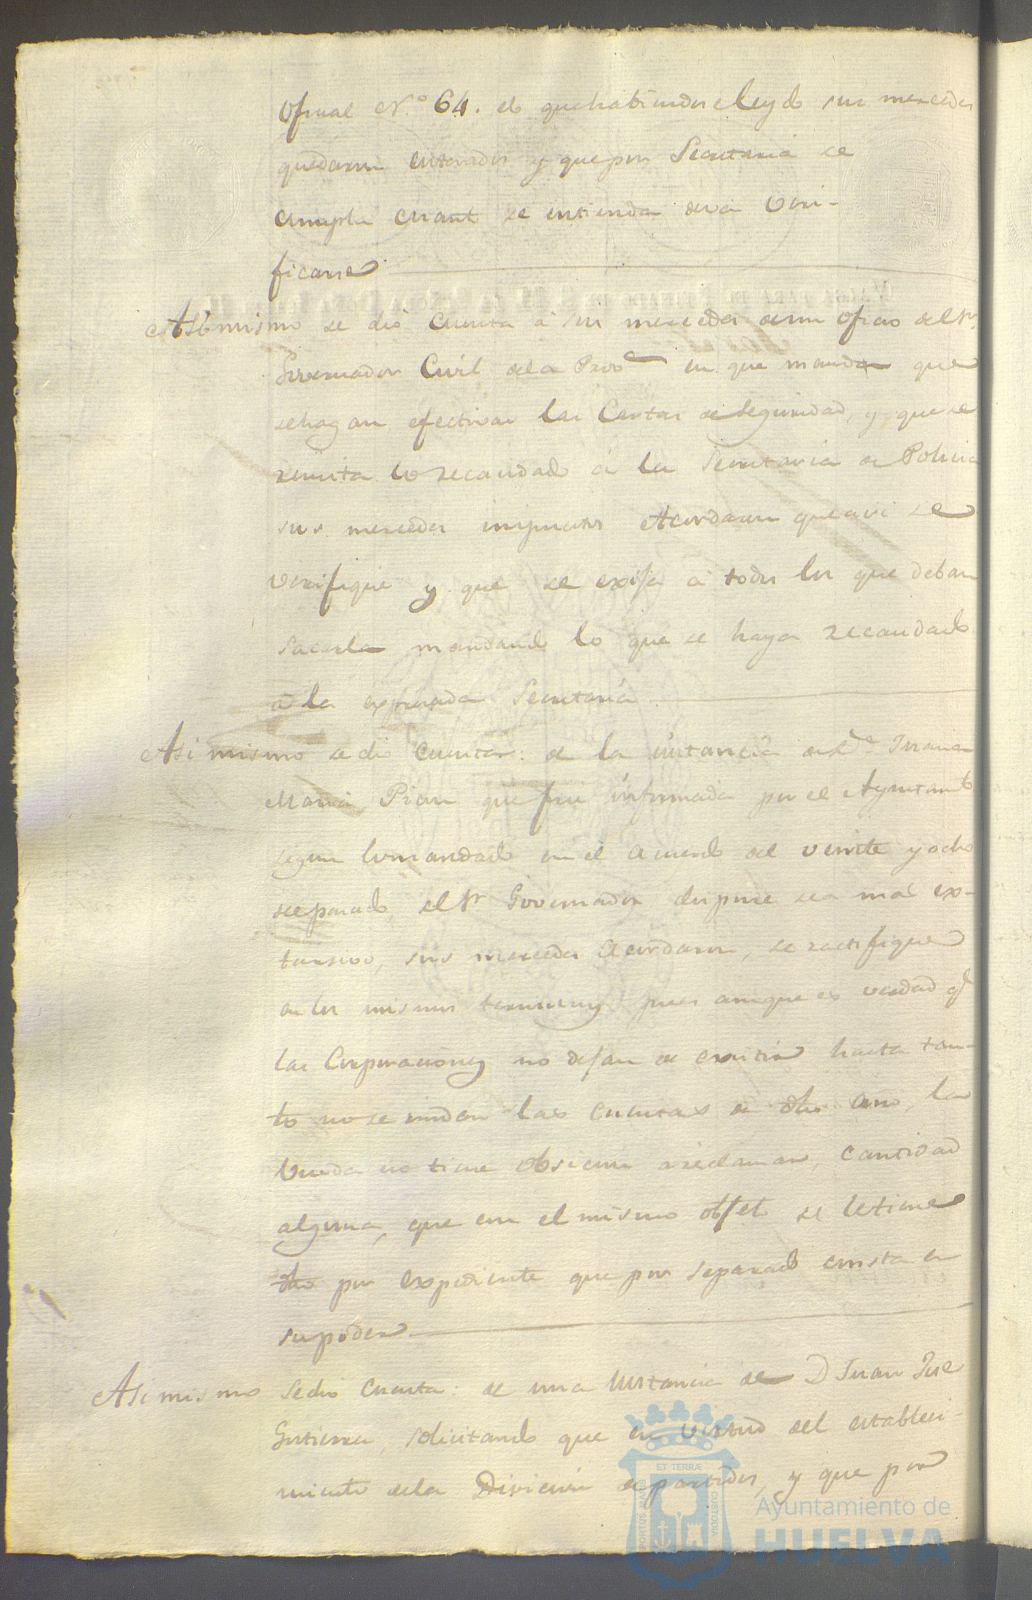 oficial N.º 64. el que habiendose leydo sus mercedes
quedaron enterados y que por Secretaria se
cumpla cuanto se entienda deva veri-
ficarse
Asimismo se dió cuenta á sus mercedes de un oficio del Sr.
Governador Civil de la Provª en que manda que
se hagan efectivas las Cartas de Seguridad, y que se
remita lo recaudado á la Secretaria de Policia
sus mercedes Acordaron que asi se
verifique y que se exija á todos los que deban
sacarla mandando lo que se haya recaudado
a la expresada Secretaría
Asimismo se dio cuenta: de la instancia de D.ª Juana
Maria que fue informada por el Ayuntamto
segun lo mandado en el acuerdo del veinte y ocho
el Sr Governador dispone sea mas ex-
tensivo, sus mercedes Acordaron, se ratifique
en los mismos terminos pues aunque es verdad q.
las Corporaciones no dejan de existir hasta tan-
to no se rinden las cuentas de dho año la
Viuda no tiene á reclamar, cantidad
alguna, que en el mismo objeto se le tiene
dho por expediente que por separado consta en
su poder
Asimismo se dio cuenta: de una Instancia de D Juan Jose
Gutierrez, solicitando que en virtud del estableci-
miento de la Division de partidos, y que por
ET TERRÆ
CUSTODIA
PORTUS MARIS
Ayuntamiento de
HUELVA